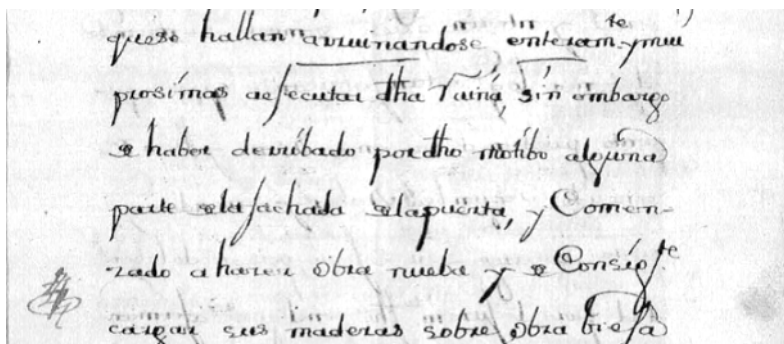 quese hallan arruinandose enteram.te y mui
prosimas aesecutar dha Ruina, sin embargo
de haber derribado por dho motibo alguna
parte dela fachada dela puerta, y Comen-
zado a hazer obra nueba y de Consig.te
cargar sus maderas sobre obra bieja